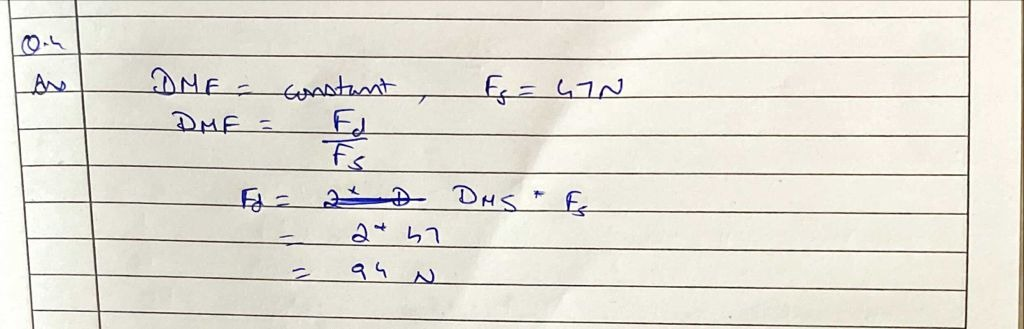 Q.4
Ans DMF = constant, Fs = 47N
DMF = Fd
Fs
Fd = DMS * Fs
= 2* 47
= 94 N